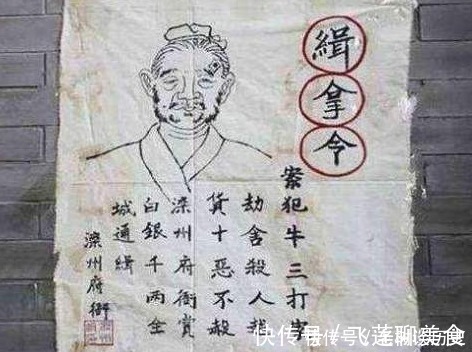 緝拿令
案犯牛三打家
劫舍殺人越
貨十惡不赦
滦州府衙賞
白銀千兩全
城通緝
滦州府衙
快传号／飞莲聊美食